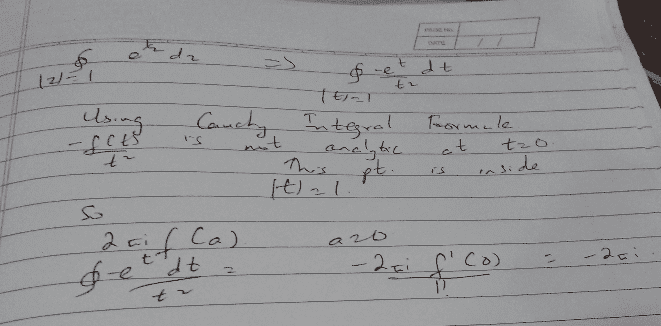 PAGE NO.
DATE / /
∮ e^{1/z} dz => ∮ -e^t/t² dt
|z|=1 |t|=1
Using Cauchy Integral Formula
-f(t)/t² is not analytic at t=0.
This pt. is inside
|t|=1.
So
2πi f(a) a=0
∮ -e^t/t² dt = -2πi f'(0)/1! = -2πi